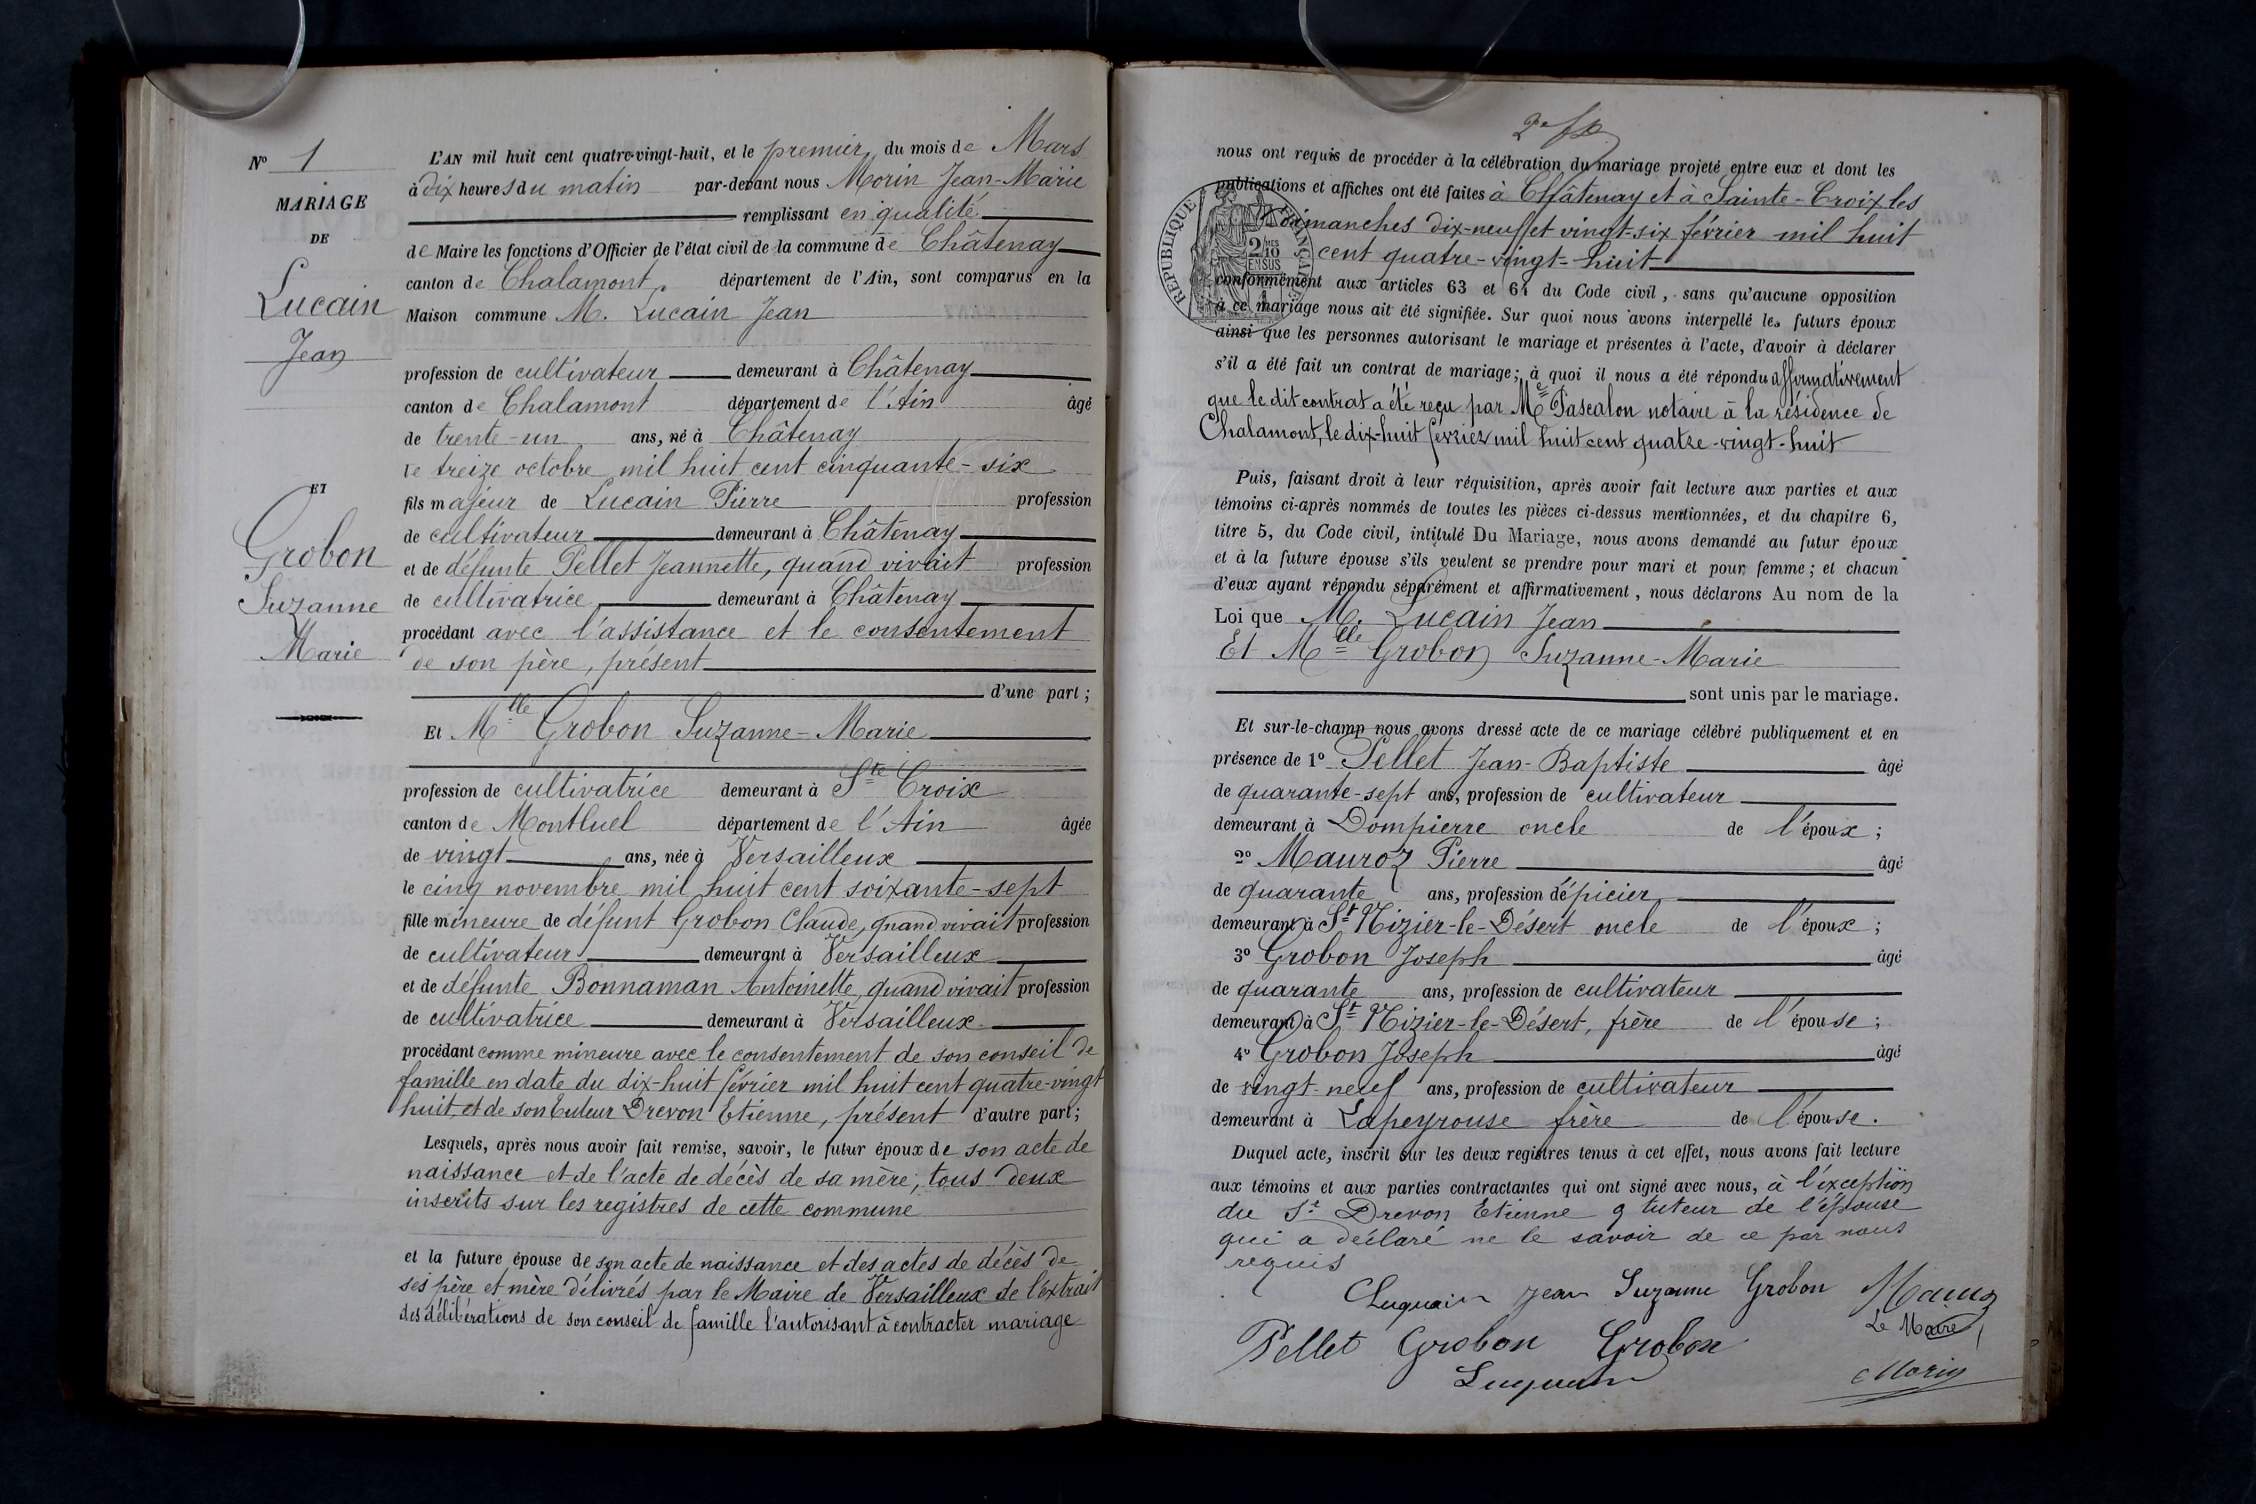 N° 1
MARIAGE
DE
Lucain
Jean
ET
Grobon
Suzanne
Marie
L'AN mil huit cent quatre-vingt-huit, et le premier du mois de Mars
à dix heures du matin par-devant nous Morin Jean-Marie
remplissant en qualité
de Maire les fonctions d'Officier de l'état civil de la commune de Châtenay
canton de Chalamont, département de l'Ain, sont comparus en la
Maison commune M. Lucain Jean
profession de cultivateur demeurant à Châtenay
canton de Chalamont département de l'Ain âgé
de trente-un ans, né à Châtenay
le treize octobre mil huit cent cinquante-six
fils majeur de Lucain Pierre profession
de cultivateur demeurant à Châtenay
et de défunte Pellet Jeannette, quand vivait profession
de cultivatrice demeurant à Châtenay
procédant avec l'assistance et le consentement
de son père, présent
d'une part ;
Et Mlle Grobon Suzanne-Marie
profession de cultivatrice demeurant à Ste Croix
canton de Montluel département de l'Ain âgée
de vingt ans, née à Versailleux
le cinq novembre mil huit cent soixante-sept
fille mineure de défunt Grobon Claude, quand vivait profession
de cultivateur demeurant à Versailleux
et de défunte Bonnaman Antoinette, quand vivait profession
de cultivatrice demeurant à Versailleux
procédant comme mineure avec le consentement de son conseil de
famille en date du dix-huit février mil huit cent quatre-vingt
huit, et de son tuteur Drevon Etienne, présent d'autre part ;
Lesquels, après nous avoir fait remise, savoir, le futur époux de son acte de
naissance et de l'acte de décès de sa mère, tous deux
inscrits sur les registres de cette commune
et la future épouse de son acte de naissance et des actes de décès de
ses père et mère délivrés par le Maire de Versailleux de l'extrait
des délibérations de son conseil de famille l'autorisant à contracter mariage
nous ont requis de procéder à la célébration du mariage projeté entre eux et dont les
publications et affiches ont été faites à Châtenay et à Sainte-Croix les
dimanches dix-neuf et vingt-six février mil huit
cent quatre-vingt-huit
conformément aux articles 63 et 64 du Code civil, sans qu'aucune opposition
à ce mariage nous ait été signifiée. Sur quoi nous avons interpellé les futurs époux
ainsi que les personnes autorisant le mariage et présentes à l'acte, d'avoir à déclarer
s'il a été fait un contrat de mariage ; à quoi il nous a été répondu affirmativement
que le dit contrat a été reçu par Me Pascalon notaire à la résidence de
Chalamont, le dix-huit février mil huit cent quatre-vingt-huit
Puis, faisant droit à leur réquisition, après avoir fait lecture aux parties et aux
témoins ci-après nommés de toutes les pièces ci-dessus mentionnées, et du chapitre 6,
titre 5, du Code civil, intitulé Du Mariage, nous avons demandé au futur époux
et à la future épouse s'ils veulent se prendre pour mari et pour femme ; et chacun
d'eux ayant répondu séparément et affirmativement, nous déclarons Au nom de la
Loi que M. Lucain Jean
Et Mlle Grobon Suzanne-Marie
sont unis par le mariage.
Et sur-le-champ nous avons dressé acte de ce mariage célébré publiquement et en
présence de 1° Pellet Jean-Baptiste âgé
de quarante-sept ans, profession de cultivateur
demeurant à Dompierre oncle de l'époux ;
2° Mauroz Pierre âgé
de quarante ans, profession d'épicier
demeurant à St Nizier-le-Désert oncle de l'époux ;
3° Grobon Joseph âgé
de quarante ans, profession de cultivateur
demeurant à St Nizier-le-Désert, frère de l'épouse ;
4° Grobon Joseph âgé
de vingt-neuf ans, profession de cultivateur
demeurant à Lapeyrouse frère de l'épouse.
Duquel acte, inscrit sur les deux registres tenus à cet effet, nous avons fait lecture
aux témoins et aux parties contractantes qui ont signé avec nous, à l'exception
du Sr Drevon Etienne tuteur de l'épouse
qui a déclaré ne le savoir de ce par nous
requis
Luquain Jean Suzanne Grobon
Le Maire
Pellet Grobon Grobon
Luquain
Morin
RÉPUBLIQUE FRANÇAISE
2/10 EN SUS